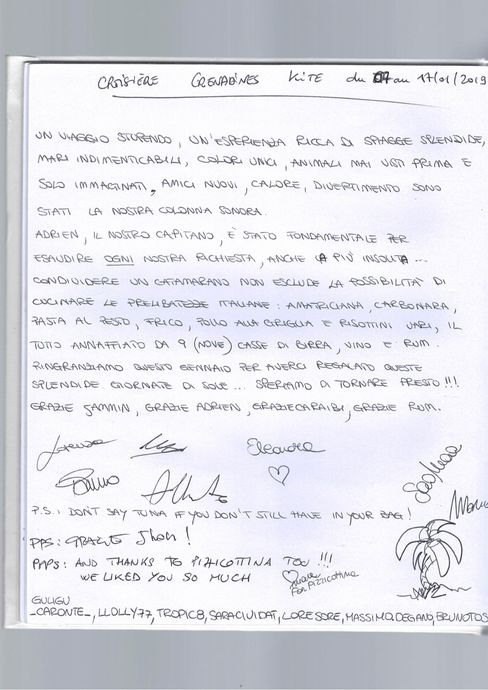 CROISIÈRE GRENADINES KITE du 07 au 17/01/2019
UN VIAGGIO STUPENDO, UN'ESPERIENZA RICCA DI SPIAGGE SPLENDIDE,
MARI INDIMENTICABILI, COLORI UNICI, ANIMALI MAI VISTI PRIMA E
SOLO IMMAGINATI, AMICI NUOVI, CALORE, DIVERTIMENTO SONO
STATI LA NOSTRA COLONNA SONORA.
ADRIEN, IL NOSTRO CAPITANO, È STATO FONDAMENTALE PER
ESAUDIRE OGNI NOSTRA RICHIESTA, ANCHE LA PIÙ INSOLITA...
CONDIVIDERE UN CATAMARANO NON ESCLUDE LA POSSIBILITÀ DI
CUCINARE LE PRELIBATEZZE ITALIANE: AMATRICIANA, CARBONARA,
PASTA AL PESTO, FRICO, POLLO ALLA GRIGLIA E RISOTTINI VARI, IL
TUTTO ANNAFFIATO DA 9 (NOVE) CASSE DI BIRRA, VINO E RUM.
RINGRANZIAMO QUESTO GENNAIO PER AVERCI REGALATO QUESTE
SPLENDIDE GIORNATE DI SOLE... SPERIAMO DI TORNARE PRESTO!!!
GRAZIE JAMMIN, GRAZIE ADRIEN, GRAZIE CARAIBI, GRAZIE RUM.
Lorenza
Eleonora
Bruno
P.S.: DON'T SAY TUNA IF YOU DON'T STILL HAVE IN YOUR BAG!
PPS: GRAZIE
PPPS: AND THANKS TO PIZZICOTTINA TOO!!!
WE LIKED YOU SO MUCH
For Pizzicottina
GULIGU
_CARONTE_, LLOLLY77, TROPIC8, SARACIVIDAT, LORESORE, MASSIMO.DEGANO, BRUNOTOS